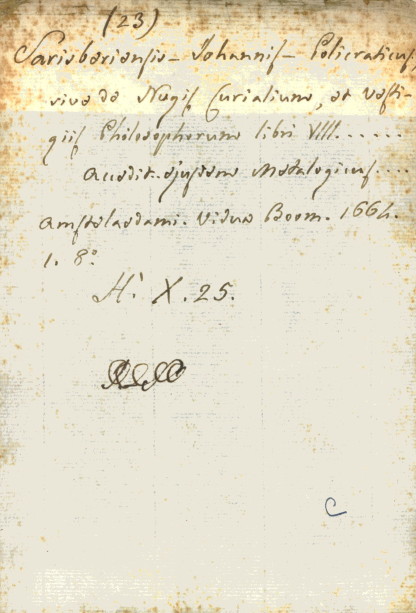 (23)
Sarisberiensis - Johannis - Policraticus,
sive de Nugis Curialium, et vesti-
giis Philosophorum libri VIII......
Accedit ejusdem Metalogicus....
Amstelaedami. Vidua Boom. 1664.
1. 8º
H. X. 25.
C